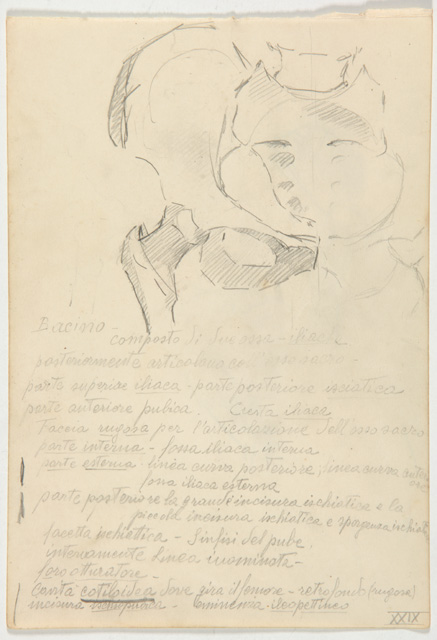 Bacino - composto di due ossa - iliache
posteriormente articolano con l'osso sacro -
parte superiore iliaca - parte posteriore isciatica
parte anteriore pubica. Cresta iliaca
Faccia rugosa per l'articolazione dell'osso sacro
parte interna - fossa iliaca interna
parte esterna - linea curva posteriore, linea curva
fossa iliaca esterna
parte posteriore la grande incisura ischiatica e la
piccola incisura ischiatica e
facetta ischiatica - Sinfisi del pube.
internamente linea innominata -
foro otturatore -
Cavità cotiloidea dove gira il femore - retrofondo (rugosa)
incisura - Eminenza ileopettinea
XXIX